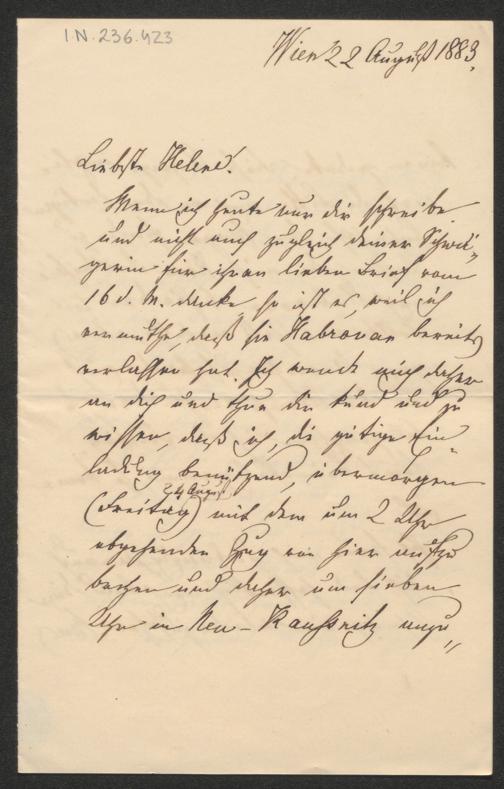 I.N. 236.423
Wien 22 August 1883.
Liebste Helene!
Wenn ich heute nur dir schreibe
und nicht auch zugleich deiner Schwä„
gerin für ihren lieben Brief vom
16 d. M. danke, so ist es, weil ich
vermuthe, daß sie Habrovan bereits
verlassen hat. Ich wende mich daher
an dich und thue dir kund und zu
wissen, daß ich, die gütige Ein„
ladung benützend, übermorgen
24 August
(Freitag) mit dem um 2 Uhr
abgehenden Zug von hier aufzu
brechen und daher um sieben
Uhr in Neu-Raussnitz anzu„